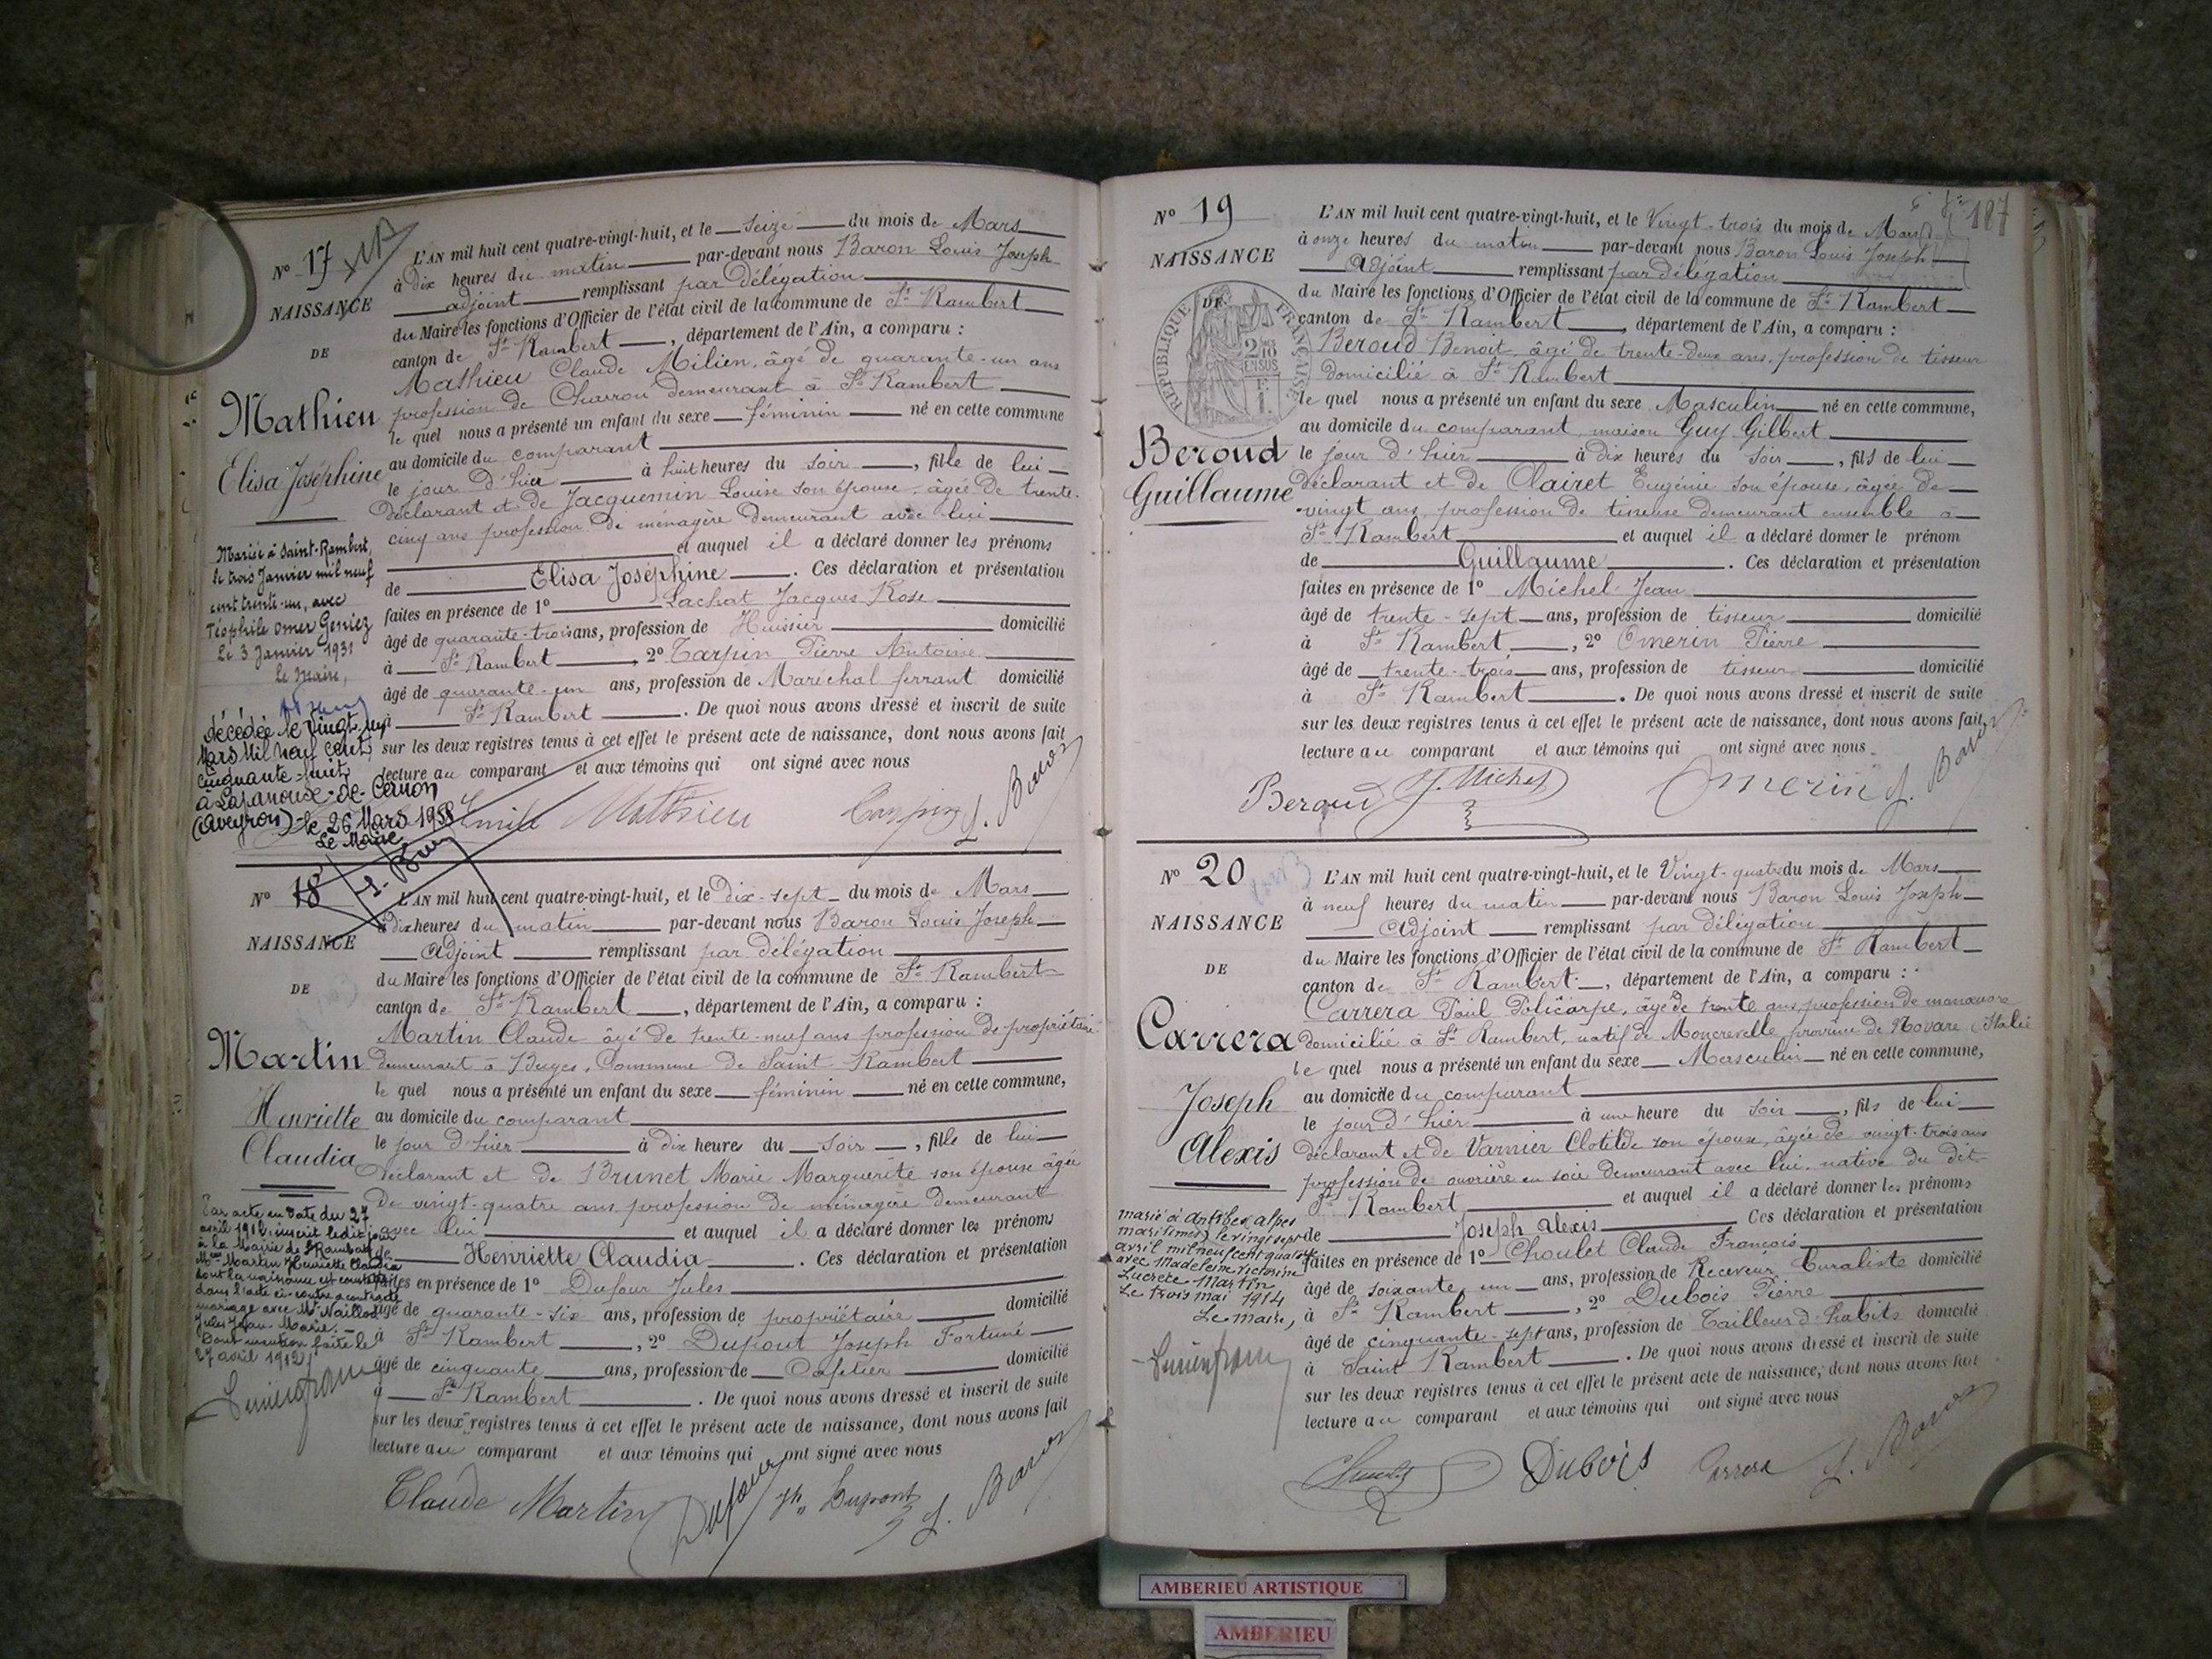 N° 17
NAISSANCE
DE
Mathieu
Elisa Joséphine
L'AN mil huit cent quatre-vingt-huit, et le seize du mois de Mars
à dix heures du matin par-devant nous Baron Louis Joseph
adjoint remplissant par Délégation
du Maire les fonctions d'Officier de l'état civil de la commune de St Rambert
canton de St Rambert, département de l'Ain, a comparu :
Mathieu Claude Milien, âgé de quarante-un ans
profession de Charron demeurant à St Rambert
le quel nous a présenté un enfant du sexe féminin né en cette commune
au domicile du comparant
le jour d'hier à huit heures du soir, fille de lui
déclarant et de Jacquemin Louise son épouse, âgée de trente-
cinq ans profession de ménagère demeurant avec lui
et auquel il a déclaré donner les prénoms
de Elisa Joséphine. Ces déclaration et présentation
faites en présence de 1° Lachat Jacques Rose
âgé de quarante-trois ans, profession de Huissier domicilié
à St Rambert, 2° Tarpin Pierre Antoine
âgé de quarante-un ans, profession de Maréchal ferrant domicilié
à St Rambert. De quoi nous avons dressé et inscrit de suite
sur les deux registres tenus à cet effet le présent acte de naissance, dont nous avons fait
lecture au comparant et aux témoins qui ont signé avec nous
Mathieu Tarpin L. Baron
Mariée à Saint-Rambert,
le trois Janvier mil neuf
cent trente-un, avec
Téophile Omer Geniez
Le 3 Janvier 1931
Le Maire,
décédée le vingt
Mars Mil neuf cent
cinquante-huit
à Lapanouse-de-Cernon
(Aveyron) - le 26 Mars 1958
Le Maire
N° 18
NAISSANCE
DE
Martin
Henriette
Claudia
L'AN mil huit cent quatre-vingt-huit, et le dix-sept du mois de Mars
à dix heures du matin par-devant nous Baron Louis Joseph
Adjoint remplissant par délégation
du Maire les fonctions d'Officier de l'état civil de la commune de St Rambert
canton de St Rambert, département de l'Ain, a comparu :
Martin Claude âgé de trente-neuf ans profession de propriétaire
demeurant à Buges, Commune de Saint Rambert
le quel nous a présenté un enfant du sexe féminin né en cette commune,
au domicile du comparant
le jour d'hier à dix heures du soir, fille de lui
déclarant et de Brunet Marie Marguerite son épouse âgée
de vingt-quatre ans profession de ménagère demeurant
avec lui et auquel il a déclaré donner les prénoms
de Henriette Claudia. Ces déclaration et présentation
faites en présence de 1° Dufour Jules
âgé de quarante-six ans, profession de propriétaire domicilié
à St Rambert, 2° Dupont Joseph Fortuné
âgé de cinquante ans, profession de Cafetier domicilié
à St Rambert. De quoi nous avons dressé et inscrit de suite
sur les deux registres tenus à cet effet le présent acte de naissance, dont nous avons fait
lecture au comparant et aux témoins qui ont signé avec nous
Claude Martin Dufour Jh Dupont L. Baron
Par acte en date du 27
avril 1912, inscrit ledit jour
à la Mairie de St Rambert
Martin Henriette Claudia
dont la naissance est constatée
dans l'acte ci-contre a contracté
mariage avec Mr Naillod
Jules Jean Marie.
Dont mention faite le
27 avril 1912
N° 19
187
NAISSANCE
DE
RÉPUBLIQUE FRANÇAISE
2/10 EN SUS
Beroud
Guillaume
L'AN mil huit cent quatre-vingt-huit, et le Vingt-trois du mois de Mars
à onze heures du matin par-devant nous Baron Louis Joseph
Adjoint remplissant par Délégation
du Maire les fonctions d'Officier de l'état civil de la commune de St Rambert
canton de St Rambert, département de l'Ain, a comparu :
Beroud Benoit, âgé de trente-deux ans, profession de tisseur
domicilié à St Rambert
le quel nous a présenté un enfant du sexe Masculin né en cette commune,
au domicile du comparant, maison Guy Gilbert
le jour d'hier à dix heures du soir, fils de lui
déclarant et de Clairet Eugénie son épouse, âgée de
vingt ans, profession de tisseuse demeurant ensemble à
St Rambert et auquel il a déclaré donner le prénom
de Guillaume. Ces déclaration et présentation
faites en présence de 1° Michel Jean
âgé de trente-sept ans, profession de tisseur domicilié
à St Rambert, 2° Omerin Pierre
âgé de trente-trois ans, profession de tisseur domicilié
à St Rambert. De quoi nous avons dressé et inscrit de suite
sur les deux registres tenus à cet effet le présent acte de naissance, dont nous avons fait
lecture au comparant et aux témoins qui ont signé avec nous.
Beroud J. Michel Omerin L. Baron
N° 20
NAISSANCE
DE
Carrera
Joseph
Alexis
L'AN mil huit cent quatre-vingt-huit, et le Vingt-quatre du mois de Mars
à neuf heures du matin par-devant nous Baron Louis Joseph
Adjoint remplissant par délégation
du Maire les fonctions d'Officier de l'état civil de la commune de St Rambert
canton de St Rambert, département de l'Ain, a comparu :
Carrera Paul Policarpe, âgé de trente ans, profession de manœuvre
domicilié à St Rambert, natif de Moncrevelle province de Novare (Italie
le quel nous a présenté un enfant du sexe Masculin né en cette commune,
au domicile du comparant
le jour d'hier à une heure du soir, fils de lui
déclarant et de Varnier Clotilde son épouse, âgée de vingt-trois ans
profession de ouvrière en soie demeurant avec lui, native du dit
St Rambert et auquel il a déclaré donner les prénoms
de Joseph Alexis Ces déclaration et présentation
faites en présence de 1° Choulet Claude François
âgé de soixante un ans, profession de Receveur Buraliste domicilié
à St Rambert, 2° Dubois Pierre
âgé de cinquante-sept ans, profession de Tailleur d'habits domicilié
à Saint Rambert. De quoi nous avons dressé et inscrit de suite
sur les deux registres tenus à cet effet le présent acte de naissance, dont nous avons fait
lecture au comparant et aux témoins qui ont signé avec nous
Dubois Carrera L. Baron
marié à Antibes (alpes
maritimes) le vingt sept
avril mil neuf cent quatorze
avec Madeleine Victorine
Lucrèce Martin
Le trois mai 1914
Le maire,
AMBERIEU ARTISTIQUE
AMBERIEU